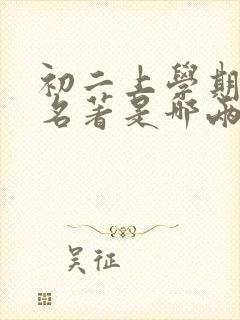 初二上學期
名著是哪兩
吴征